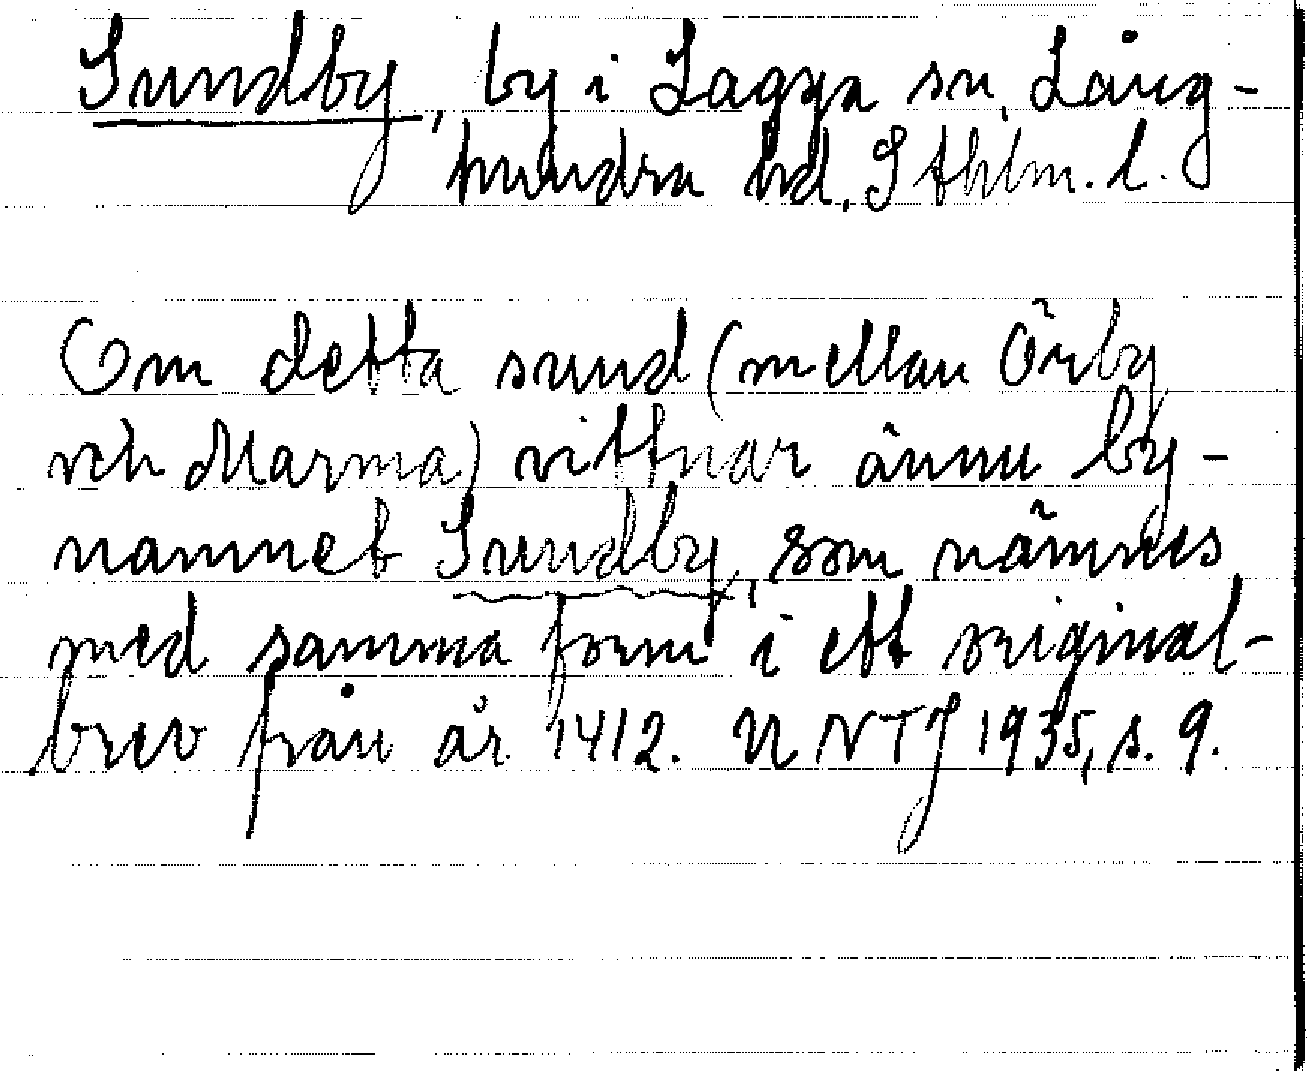 Sundby, by i Lagga sn, Lång-
hundra hd. Sthlm. l.
Om detta sund (mellan Örby
och Marma) vittnar ännu by-
namnet Sundby, som nämnes
med samma form i ett original-
brev från år 1412. UNTJ 1935, s. 9.